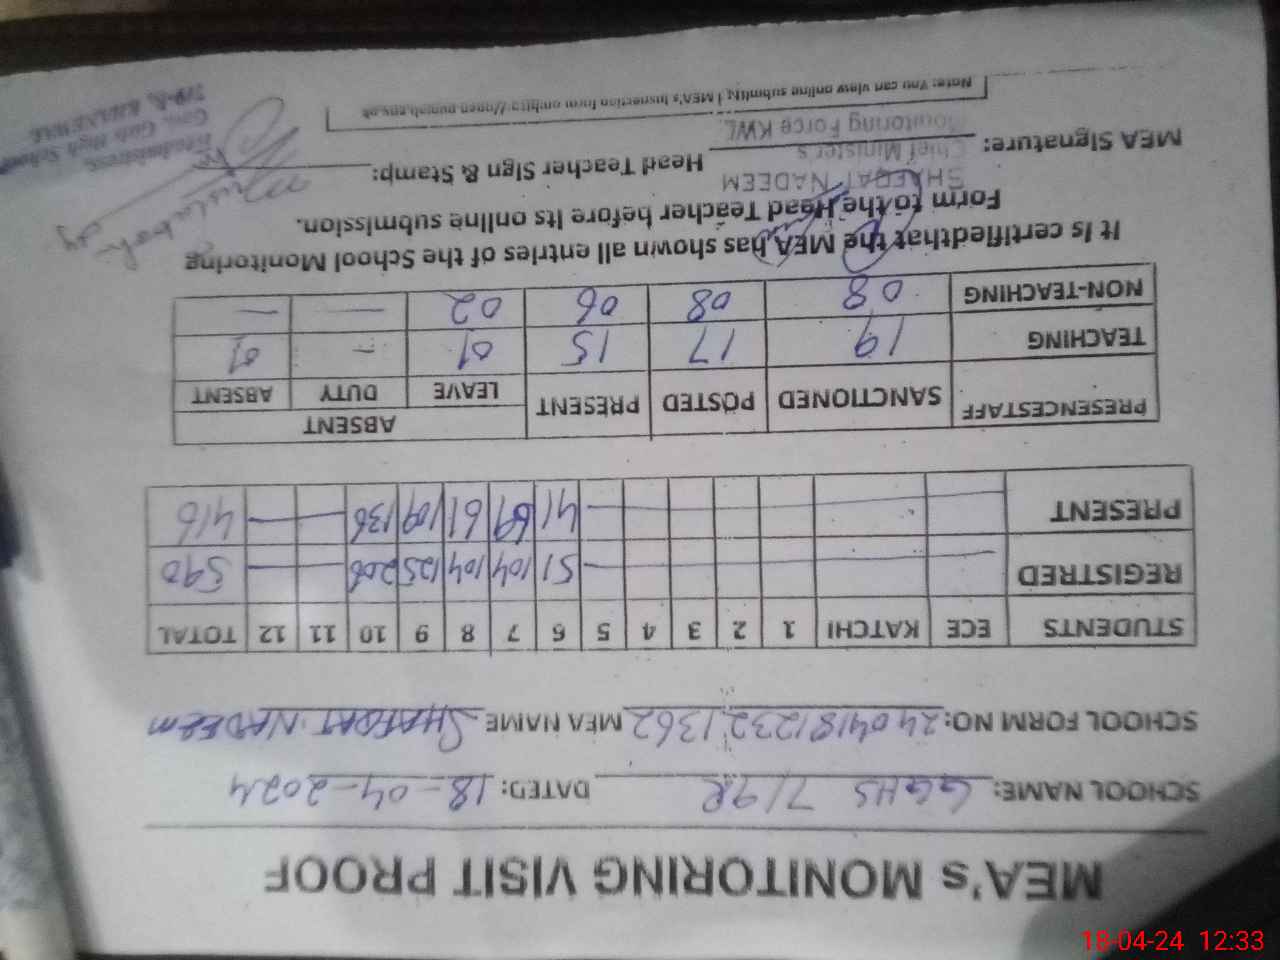 MEA's MONITORING VISIT PROOF
SCHOOL NAME: GGHS 7/9R DATED: 18-04-2024
SCHOOL FORM NO: 2404181232 1362 MEA NAME SHAFQAT NADEEM
STUDENTS ECE KATCHI 1 2 3 4 5 6 7 8 9 10 11 12 TOTAL
REGISTRED — 51 104 104 125 206 — 590
PRESENT — 41 69 61 109 136 — 416
PRESENCESTAFF SANCTIONED POSTED PRESENT ABSENT
LEAVE DUTY ABSENT
TEACHING 19 17 15 01 - 01
NON-TEACHING 08 08 06 02 — —
It is certifiedthat the MEA has shown all entries of the School Monitoring
Form to the Head Teacher before its online submission.
MEA Signature: Head Teacher Sign & Stamp:
SHAFQAT NADEEM
Chief Minister's
Monitoring Force KWL
Headmistress,
Govt. Girls High School
7/9-R, KHANEWAL
Note: You can view online submitted MEA's inspection form on http://open.punjab.gov.pk
18-04-24 12:33